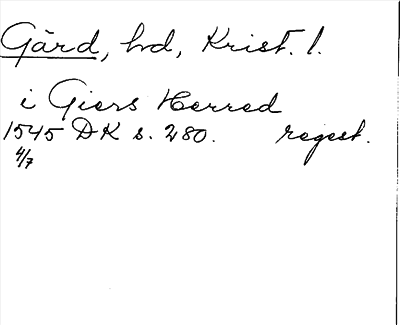 Gård, hd, Krist. l.
i Giers Herred
1545 DK s. 280. regest.
4/7